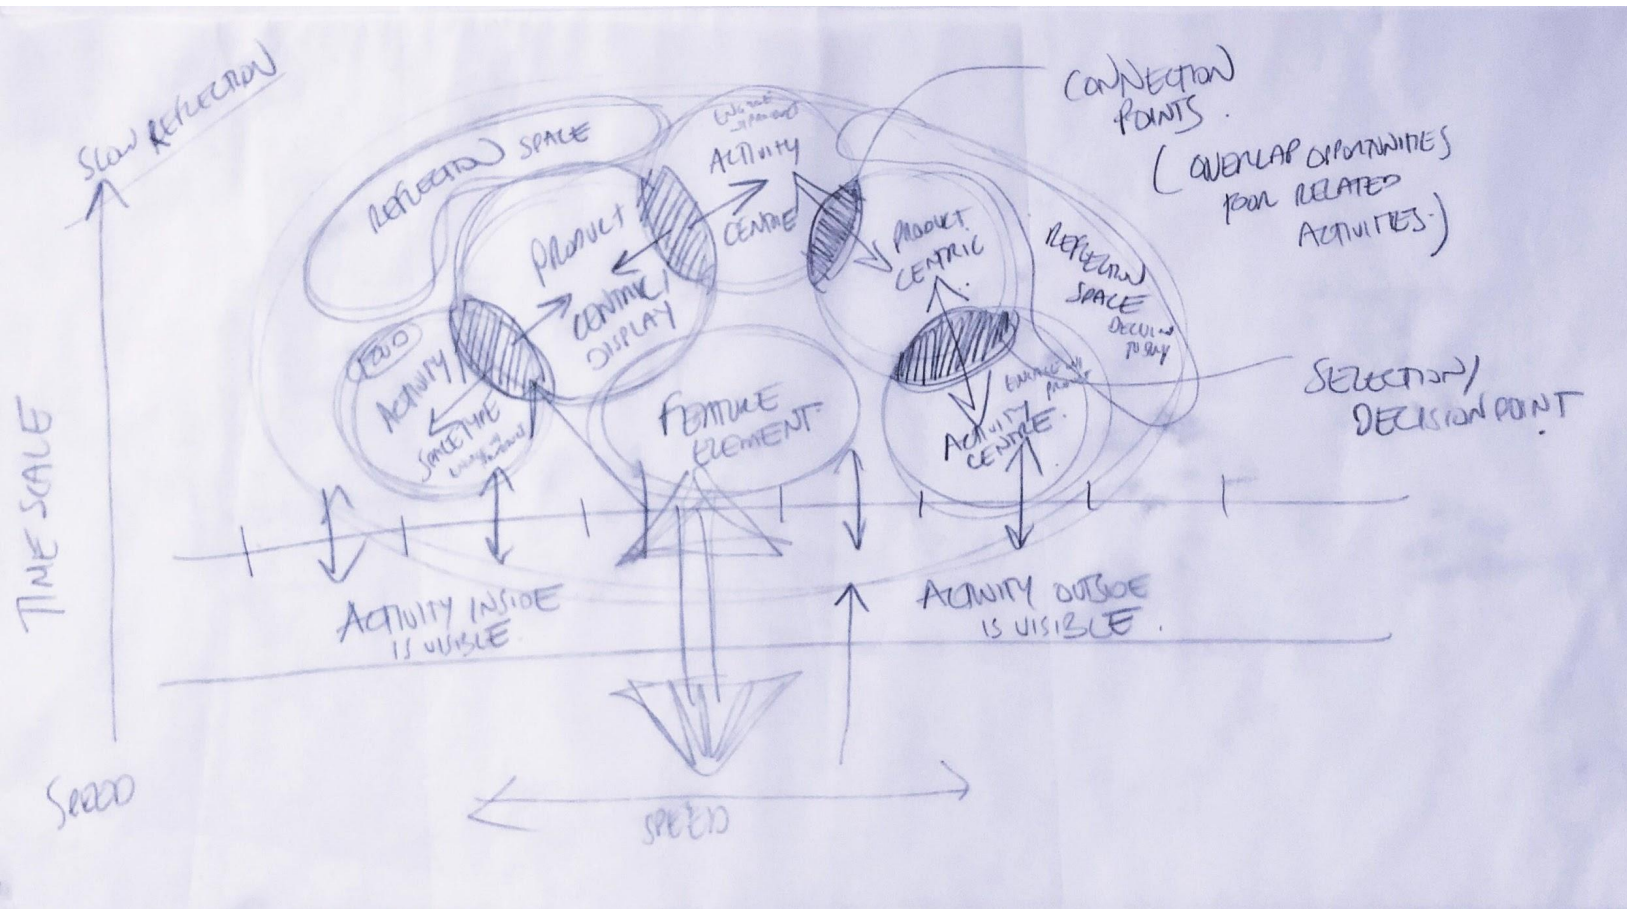 SLOW REFLECTION
TIME SCALE
SPEED
REFLECTION SPACE
ACTIVITY
CENTRE
PRODUCT
CENTRIC/
DISPLAY
FOOD
ACTIVITY
SPACE TYPE
FEATURE
ELEMENT
PRODUCT
CENTRIC
ENGAGE
ACTIVITY
CENTRE
REFLECTION
SPACE
DECIDING
TO BUY
CONNECTION
POINTS.
(OVERLAP OPPORTUNITIES
FOR RELATED
ACTIVITIES.)
SELECTION/
DECISION POINT
ACTIVITY INSIDE
IS VISIBLE.
ACTIVITY OUTSIDE
IS VISIBLE.
SPEED